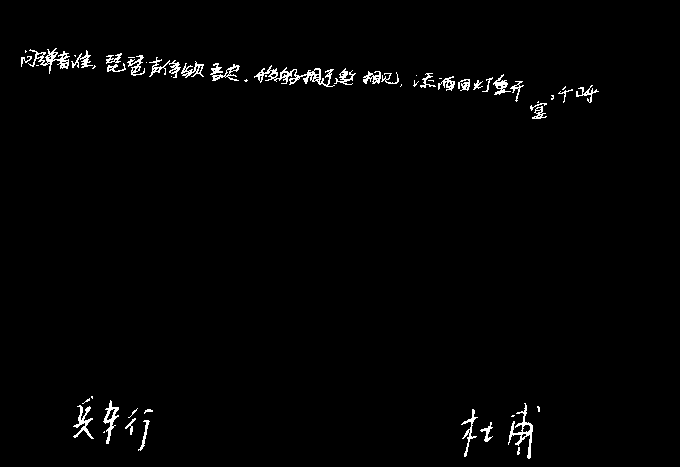 问弹者谁,琵琶声停欲语迟.移船相近邀相见,添酒回灯重开宴,千呼
兵车行 杜甫